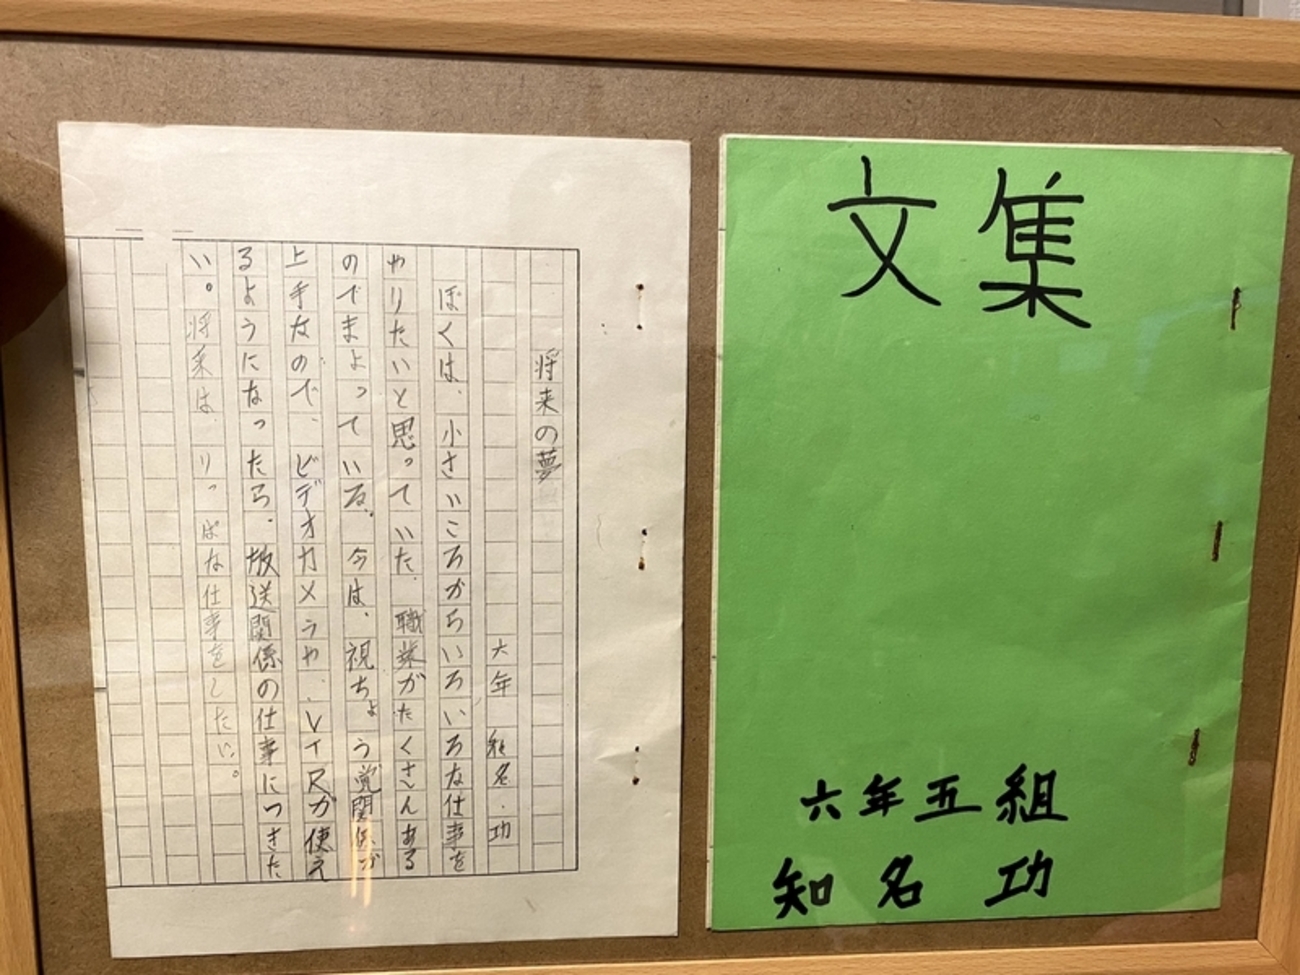 文集
六年五組
知名 功
将来の夢
六年 知名 功
ぼくは、小さいころからいろいろな仕事を
やりたいと思っていた。職業がたくさんある
のでまよっている。今は、視ちょう覚関係が
上手なので、ビデオカメラや、VTRが使え
るようになったら、放送関係の仕事につきた
い。将来は、りっぱな仕事をしたい。